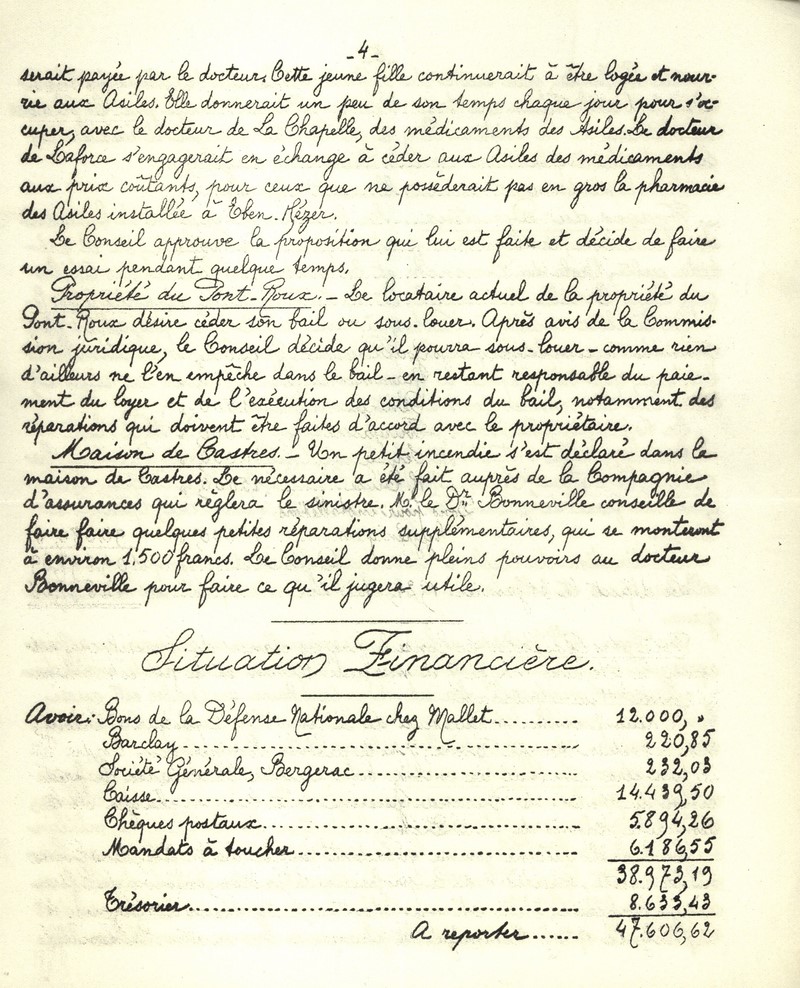 -4-
serait payée par le docteur. Cette jeune fille continuerait à être logée et nour-
rie aux Asiles. Elle donnerait un peu de son temps chaque jour pour s'oc-
cuper, avec le docteur de La Chapelle, des médicaments des Asiles. Le docteur
de Laforce s'engagerait en échange à céder aux Asiles des médicaments
aux prix coûtants, pour ceux que ne posséderait pas en gros la pharmacie
des Asiles installée à Eben-Hézer.
Le Conseil approuve la proposition qui lui est faite et décide de faire
un essai pendant quelque temps.
Propriété du Pont-Roux. - Le locataire actuel de la propriété du
Pont-Roux désire céder son bail ou sous-louer. Après avis de la Commis-
sion juridique, le Conseil décide qu'il pourra sous-louer - comme rien
d'ailleurs ne l'en empêche dans le bail - en restant responsable du paie-
ment du loyer et de l'exécution des conditions du bail, notamment des
réparations qui doivent être faites d'accord avec le propriétaire.
Maison de Castres. - Un petit incendie s'est déclaré dans la
maison de Castres. Le nécessaire a été fait auprès de la Compagnie
d'assurances qui règlera le sinistre. M. le Dr. Bonneville conseille de
faire faire quelques petites réparations supplémentaires, qui se monteront
à environ 1.500 francs. Le Conseil donne pleins pouvoirs au docteur
Bonneville pour faire ce qu'il jugera utile.
Situation Financière.
Avoir: Bons de la Défense Nationale chez Mallet.......... 12.000, "
Barclay.......... 220,85
Société Générale, Bergerac.......... 232,03
Caisse.......... 14.439,50
Chèques postaux.......... 5.894,26
Mandats à toucher.......... 6.186,55
38.973,19
Trésorier.......... 8.633,43
A reporter...... 47.606,62